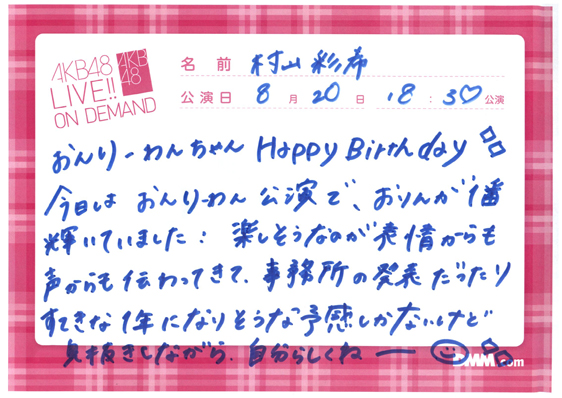 AKB48
LIVE!!
ON DEMAND
AKB
48
名前 村山彩希
公演日 8月20日 18:30♡公演
おんりーわんちゃん Happy Birthday
今日は おんりーわん 公演で、おりんが1番
輝いていました! 楽しそうなのが表情からも
声からも伝わってきて、事務所の発表だったり
すてきな1年になりそうな予感しかないけど
息抜きしながら、自分らしくねー
DMM.com